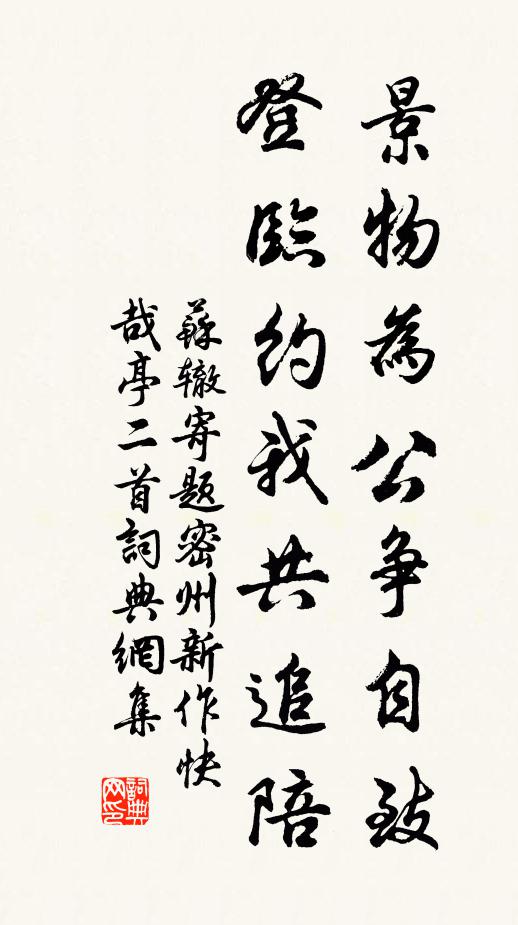 景物為公争自致
登臨約我共追陪
蘇辙寄题密州新作快
哉亭二首詞典網集
詞典网印